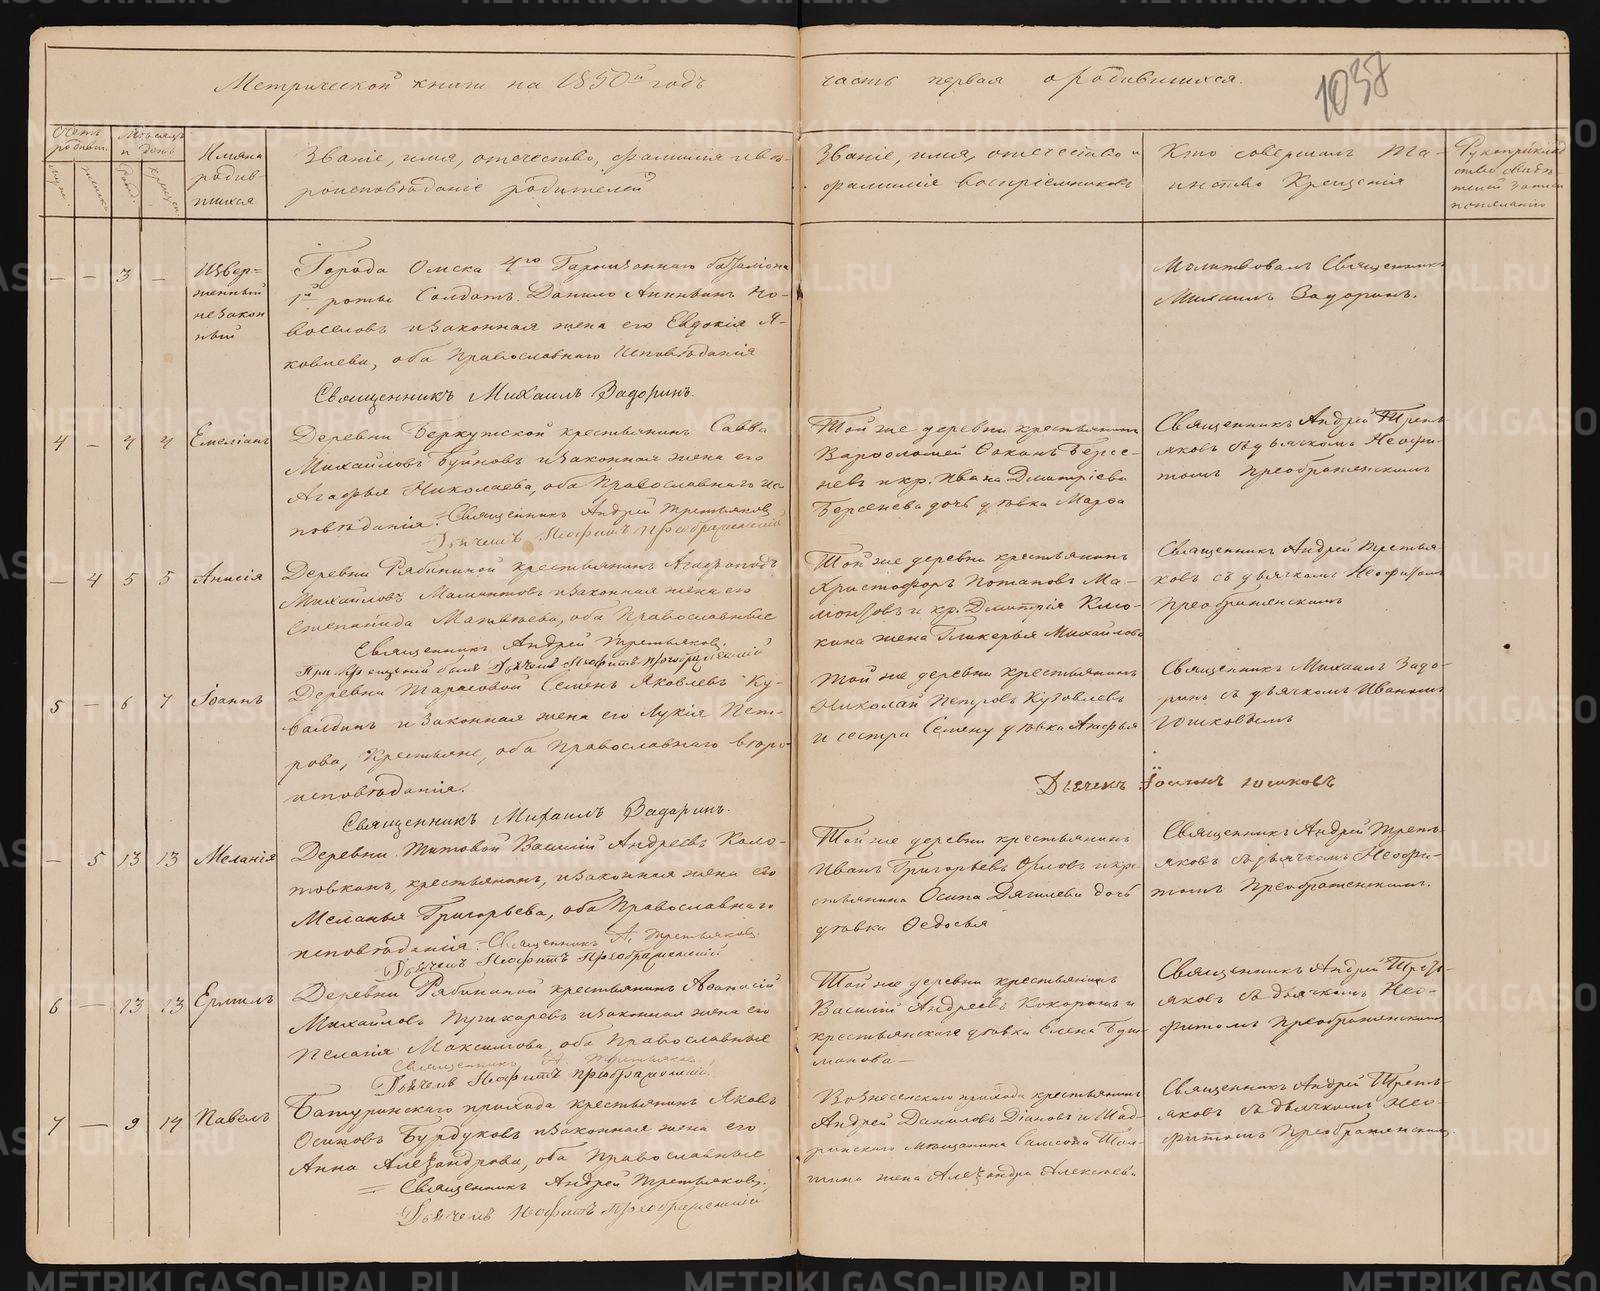 Метрической книги на 1850й годъ
часть первая о родившихся.
1037
Счетъ родивш.
муж.
женска
Мѣсяцъ и день
рожд.
крещен.
Имяна
родив-
шихся
Званіе, имя, отечество, фамилія и вѣ-
роисповѣданіе родителей
Званіе, имя, отечество и
фамилія воспріемниковъ
Кто совершалъ та-
инство Крещенія
Рукоприклад
ство свидѣ
телей записи
по желанію
— — 3 —
Извер=
женный
незакон
ный
Города Омска 4го Гарнизоннаго баталіона
1й роты Солдатъ Данило Но-
воселовъ и законная жена его Евдокія Я-
ковлева, оба Православнаго исповѣданія
Священникъ Михаилъ Задоринъ.
Молитвовалъ Священникъ
Михаилъ Задоринъ.
4 — 4 4
Емеліанъ
Деревни Беркутской крестьянинъ Савва
Михайловъ Буйновъ и законная жена его
Агафья Николаева, оба Православнаго ис-
повѣданія. Священникъ Андрей Третьяковъ
Дьячекъ Неофитъ Преображенскій
Той же деревни крестьянинъ
Варѳоломей Берсе-
невъ и кр. Ивана Дмитріева
Берсенева дочь дѣвка Марѳа
Священникъ Андрей Треть
яковъ съ дьячкомъ Неофи-
томъ Преображенскимъ
— 4 5 5
Анисія
Деревни Рябининой крестьянинъ Агафоподъ
Михайловъ Мамонтовъ и законная жена его
Степанида Матвѣева, оба Православные
Священникъ Андрей Третьяковъ
При крещеніи былъ Дьячекъ Неофитъ Преображенскій
Той же деревни крестьянинъ
Христофоръ Потаповъ Ма-
монтовъ и кр. Дмитрія Клю-
кина жена Гликерья Михайлова
Священникъ Андрей Третья
ковъ съ дьячкомъ Неофитомъ
Преображенскимъ
5 — 6 7
Іоаннъ
Деревни Тарасовой Семенъ Яковлевъ Ку-
балдинъ и законная жена его Лукія Пет-
рова, Крестьяне, оба Православнаго вѣро-
исповѣданія.
Священникъ Михаилъ Задоринъ.
Той же деревни крестьянинъ
Николай Петровъ Кузовлевъ
и сестра Семену дѣвка Агафья
Священникъ Михаилъ Задо-
ринъ съ дьячкомъ Иваномъ
Юшковымъ
Дьячекъ Іоаннъ Юшковъ
— 5 13 13
Меланія
Деревни Титовой Василій Андреевъ Коло-
товкинъ, крестьянинъ, и законная жена его
Меланья Григорьева, оба Православнаго
исповѣданія. Священникъ А. Третьяковъ
Дьячекъ Неофитъ Преображенскій
Той же деревни крестьянинъ
Иванъ Григорьевъ Орловъ и кре-
стьянина Осипа Дягилева дочь
дѣвка Ѳедосья
Священникъ Андрей Треть-
яковъ съ дьячкомъ Неофи-
томъ Преображенскимъ.
6 — 13 13
Ермилъ
Деревни Рябининой крестьянинъ Аѳанасій
Михайловъ Пушкаревъ и законная жена его
Пелагія Максимова, оба Православные
Священникъ А. Третьяковъ
Дьячекъ Неофитъ Преображенскій
Той же деревни крестьянинъ
Василій Андреевъ Кокоринъ и
крестьянская дѣвка Елена
Священникъ Андрей Треть-
яковъ съ дьячкомъ Нео-
фитомъ Преображенскимъ
7 — 9 14
Павелъ
Батуринскаго прихода крестьянинъ Яковъ
Осиповъ Бурдуковъ и законная жена его
Анна Александрова, оба Православные
Священникъ Андрей Третьяковъ
Дьячекъ Неофитъ Преображенскій
Вознесенскаго прихода крестьянинъ
Андрей Даниловъ Діановъ и Шад-
ринскаго мѣщанина
жена Александра Алексѣева
Священникъ Андрей Треть-
яковъ съ дьячкомъ Нео-
фитомъ Преображенскимъ
METRIKI.GASO-URAL.RU